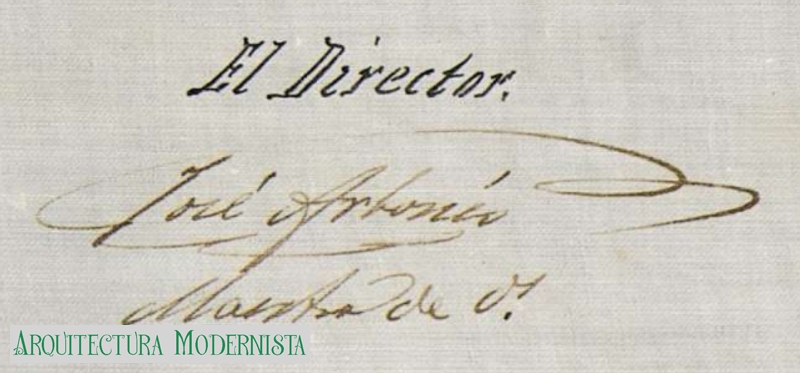 El Director.
José Antonio
Maestro de o.
ARQUITECTURA MODERNISTA